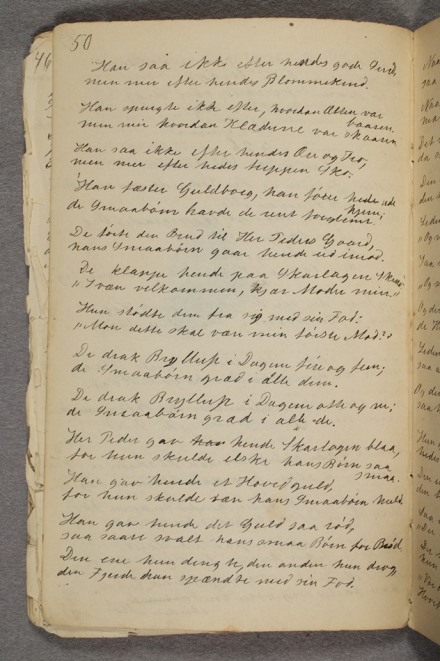 50
Han saa ikke efter hendes gode Ferd,
men mer efter hendes Blommekind.
Han spurgte ikke efter, hvordan Ætten var baaren,
men mer hvordan Kladerne var skaaren.
Han saa ikke efter hendes Ær og Tro,
men mer efter hendes Sko.
Han fæster Guldborg, han fører hende hjem;
de Smaabørn havde de rent forglemt.
De førte den Brud til Her Peders Gaard,
hans Smaabørn gaar hende ud imod.
De klappe hende paa Skarlagen
"Vær velkommen, kjær Moder min."
Hun stødte dem fra sig med sin Fod:
"Mon dette skal være min første Mod?"
De drak Bryllup i Dagene fire og fem;
de Smaabørn græd i alle dem.
De drak Bryllup i Dagene otte og ni;
de Smaabørn græd i alle de.
Her Peder gav hende Skarlagen blaa,
for hun skulde elske hans Børn saa smaa.
Han gav hende et Hovedguld,
for hun skulde vær hans Smaabørn huld.
Han gav hende det Guld saa rød,
saa saare svalt hans smaa Børn for Brød.
Den ene hun dengte, den anden hun drog,
den Fjerde hun spændte med sin Fod.